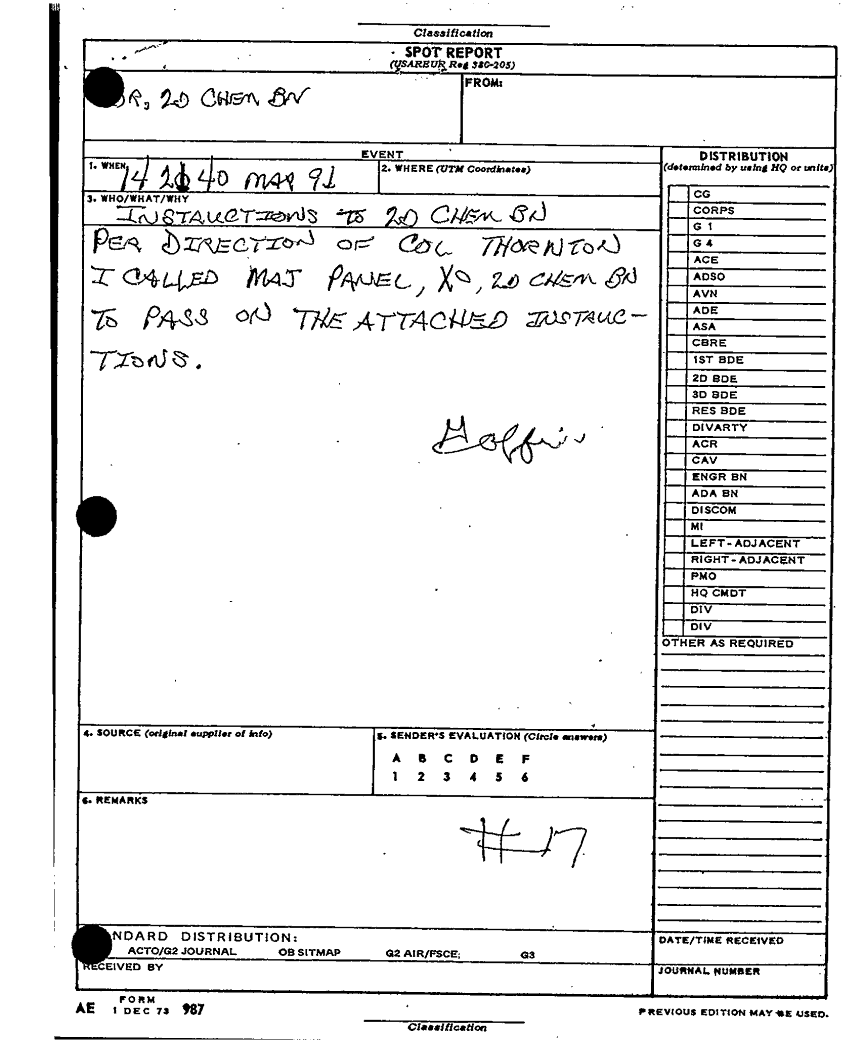 Classification
SPOT REPORT
(USAREUR Reg 380-205)
DR, 2D CHEM BN
FROM:
EVENT
1. WHEN
14 2140 MAR 91
2. WHERE (UTM Coordinates)
3. WHO/WHAT/WHY
INSTRUCTIONS TO 2D CHEM BN
PER DIRECTION OF COL THORNTON
I CALLED MAJ PANEL, XO, 2D CHEM BN
TO PASS ON THE ATTACHED INSTRUC-
TIONS.
4. SOURCE (original supplier of info)
5. SENDER'S EVALUATION (Circle answers)
A B C D E F
1 2 3 4 5 6
6. REMARKS
#17
NDARD DISTRIBUTION:
ACTO/G2 JOURNAL OB SITMAP G2 AIR/FSCE; G3
RECEIVED BY
DISTRIBUTION
(determined by using HQ or units)
CG
CORPS
G 1
G 4
ACE
ADSO
AVN
ADE
ASA
CBRE
1ST BDE
2D BDE
3D BDE
RES BDE
DIVARTY
ACR
CAV
ENGR BN
ADA BN
DISCOM
MI
LEFT-ADJACENT
RIGHT-ADJACENT
PMO
HQ CMDT
DIV
DIV
OTHER AS REQUIRED
DATE/TIME RECEIVED
JOURNAL NUMBER
AE FORM 1 DEC 73 987
PREVIOUS EDITION MAY BE USED.
Classification